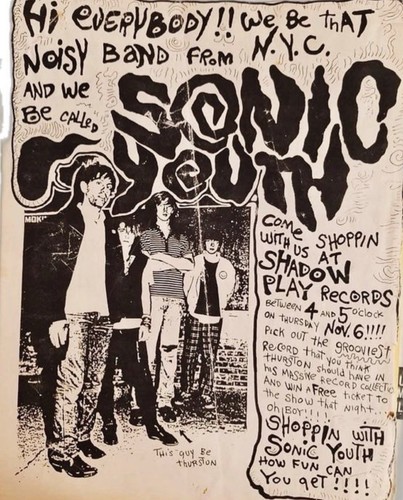 Hi everybody!! we be that
noisy band from N.Y.C.
and we
be called
SONIC
YOUTH
come shoppin
with us at
SHADOW
PLAY RECORDS
between 4 and 5 o'clock
on thursday Nov. 6!!!!
Pick out the grooviest
record that you think
thurston should have in
his massive record collectic
and win a Free ticket to
the show that night..
oh Boy!!!!
Shoppin with
Sonic Youth
how fun can
You get!!!!
This guy be
thurston